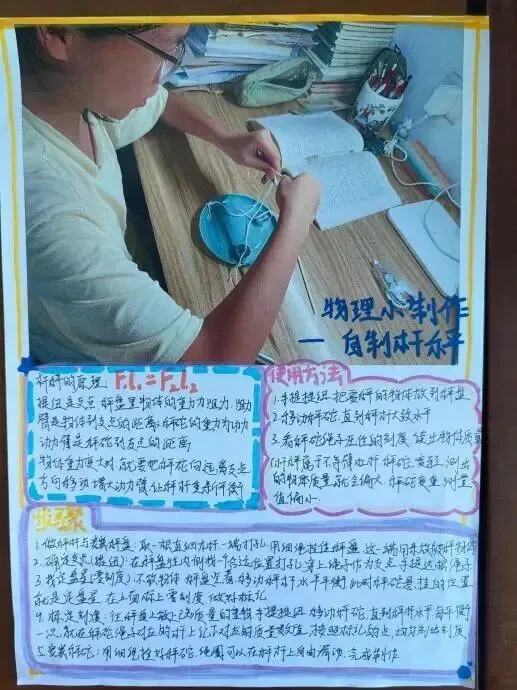 物理小制作
— 自制杆秤
杆秤的原理: F₁L₁=F₂L₂
提纽是支点 秤盘里物体的重力为阻力,阻力
臂是物体到支点的距离,秤砣的重力为动力
动力臂是秤砣到支点的距离
物体重力变大时,就要把秤砣向远离支点
方向移动,增大动力臂,让杆秤重新平衡
使用方法
1.手提提纽,把要称的物体放到秤盘
2.移动秤砣,直到秤杆大致水平
3.看秤砣绳子压住的刻度,读出物体质量
杆秤属于不等臂杠杆,秤砣变轻,测出
的物体质量就会偏大,秤砣变重,测量
值偏小.
步骤
1.做秤杆与安装秤盘:取一根直细木杆,一端打孔,用细绳拴住秤盘,这一端用来放被称物体
2.确定支点(提纽):在秤盘往内侧找一个合适位置打孔,穿上绳子作为支点,手提这根绳子
3.找定盘星(零刻度):不放物体,秤盘空着,移动秤杆水平平衡,此时秤砣悬挂的位置
就是定盘星,在上面标上零刻度,做好标记
4.标定刻度:往秤盘上放已知质量的重物,手提提纽,移动秤砣,直到秤杆水平,每平衡
一次,就在秤砣绳子对应的杆上记下对应的质量数值,按照标记的点,均匀刻出刻度
5.安装秤砣:用细绳拴好秤砣,绳圈可以在秤杆上自由滑动,完成制作